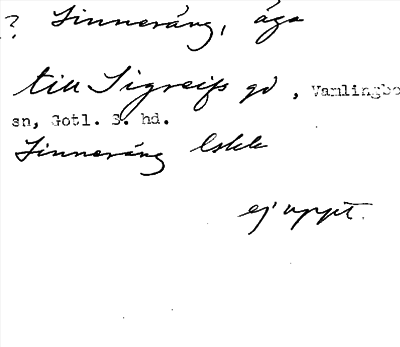 ? Linneräng, äga
till Sigreifs gd , Vamlingbo
sn, Gotl. S. hd.
Linneräng Eskk
ej uppt.